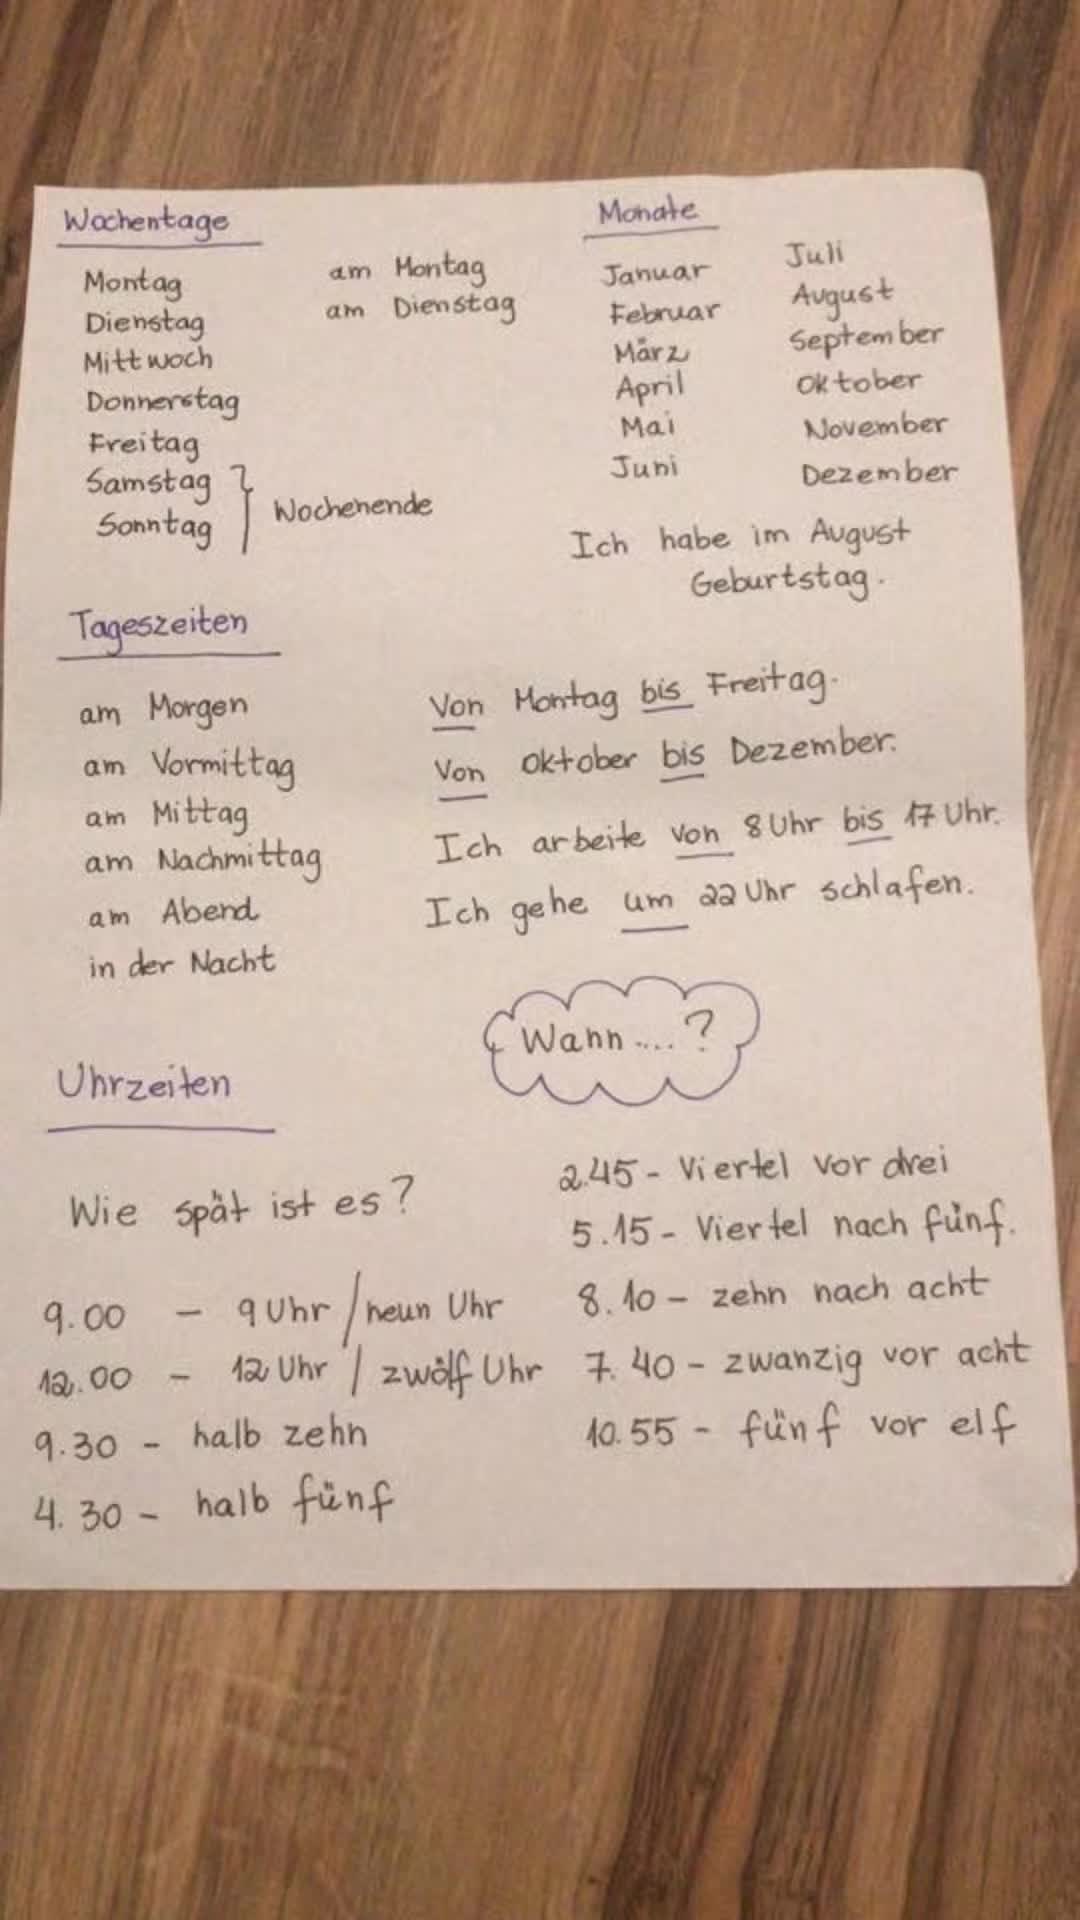 Wochentage
Montag
Dienstag
Mittwoch
Donnerstag
Freitag
Samstag
Sonntag
Wochenende
am Montag
am Dienstag
Monate
Januar
Februar
März
April
Mai
Juni
Juli
August
September
Oktober
November
Dezember
Ich habe im August
Geburtstag.
Tageszeiten
am Morgen
am Vormittag
am Mittag
am Nachmittag
am Abend
in der Nacht
Von Montag bis Freitag.
Von Oktober bis Dezember.
Ich arbeite von 8 Uhr bis 17 Uhr.
Ich gehe um 22 Uhr schlafen.
Wann....?
Uhrzeiten
Wie spät ist es?
9.00 - 9 Uhr / neun Uhr
12.00 - 12 Uhr / zwölf Uhr
9.30 - halb zehn
4.30 - halb fünf
2.45 - Viertel vor drei
5.15 - Viertel nach fünf.
8.10 - zehn nach acht
7.40 - zwanzig vor acht
10.55 - fünf vor elf